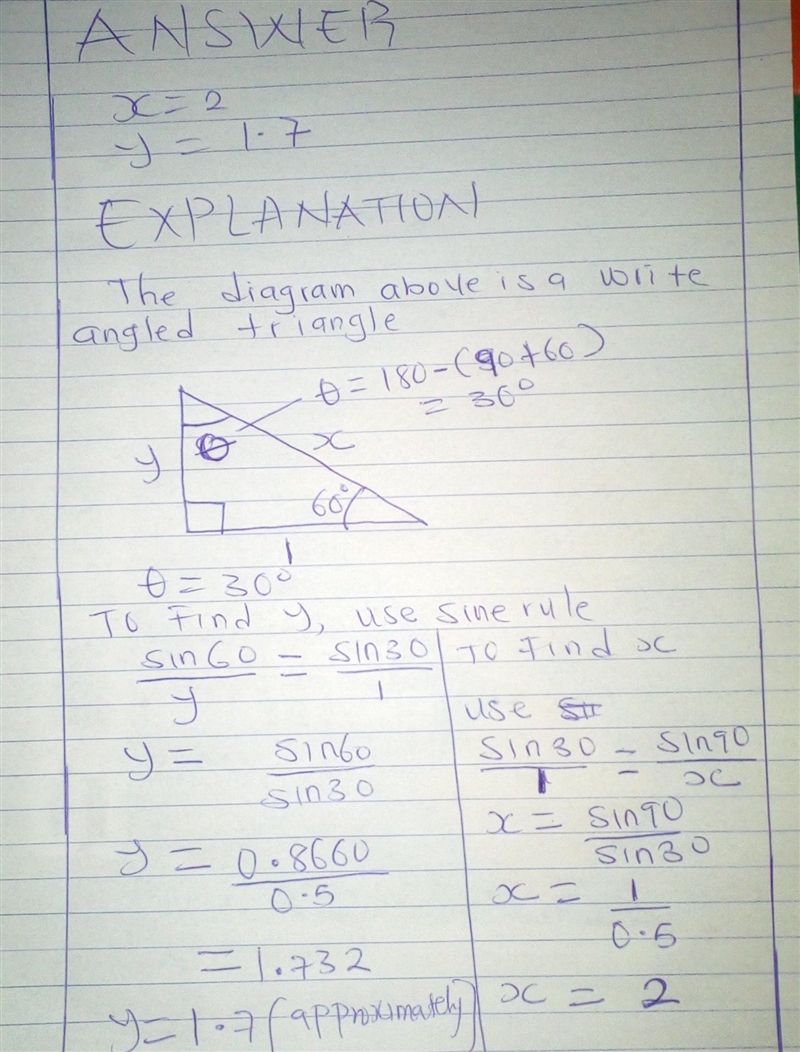 ANSWER
x = 2
y = 1.7
EXPLANATION
The diagram above is a write
angled triangle
θ = 180 - (90+60)
= 30°
y
θ
x
60°
1
θ = 30°
To find y, use sine rule
sin60/y = sin30/1
y = sin60/sin30
y = 0.8660/0.5
= 1.732
y = 1.7 (approximately)
To find x
use
sin30/1 = sin90/x
x = sin90/sin30
x = 1/0.5
x = 2